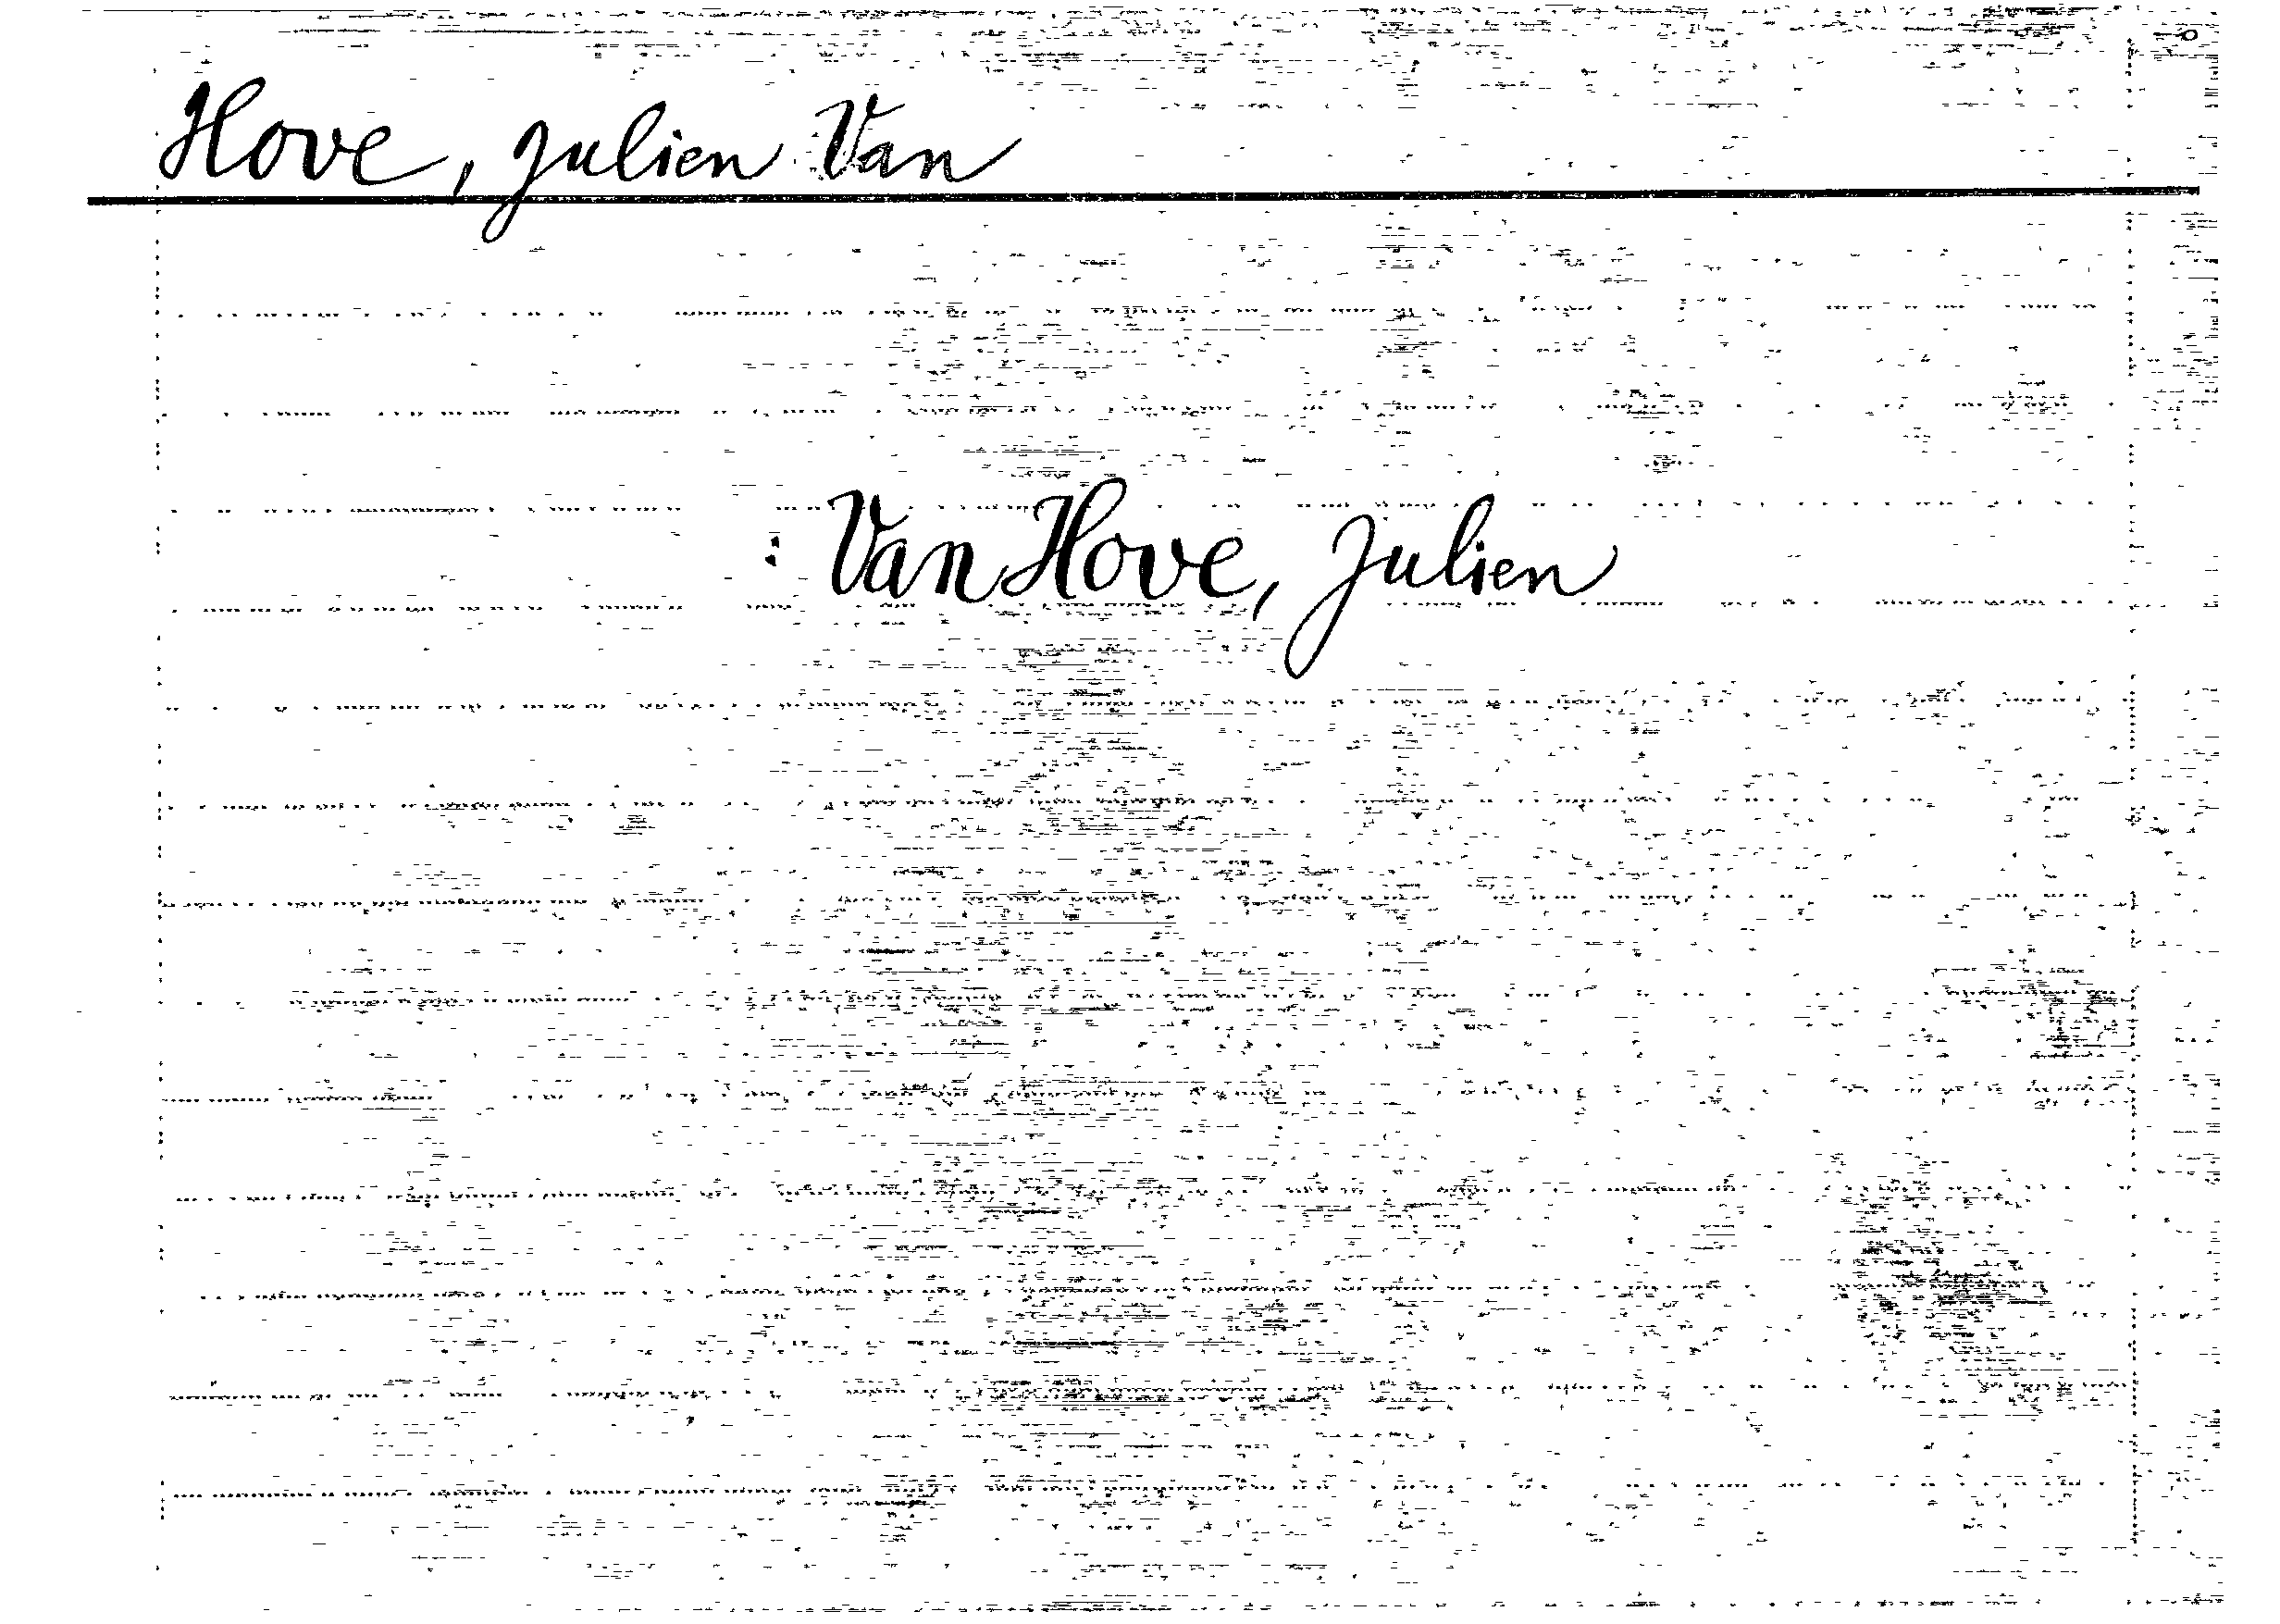 Hove, Julien Van
: Van Hove, Julien